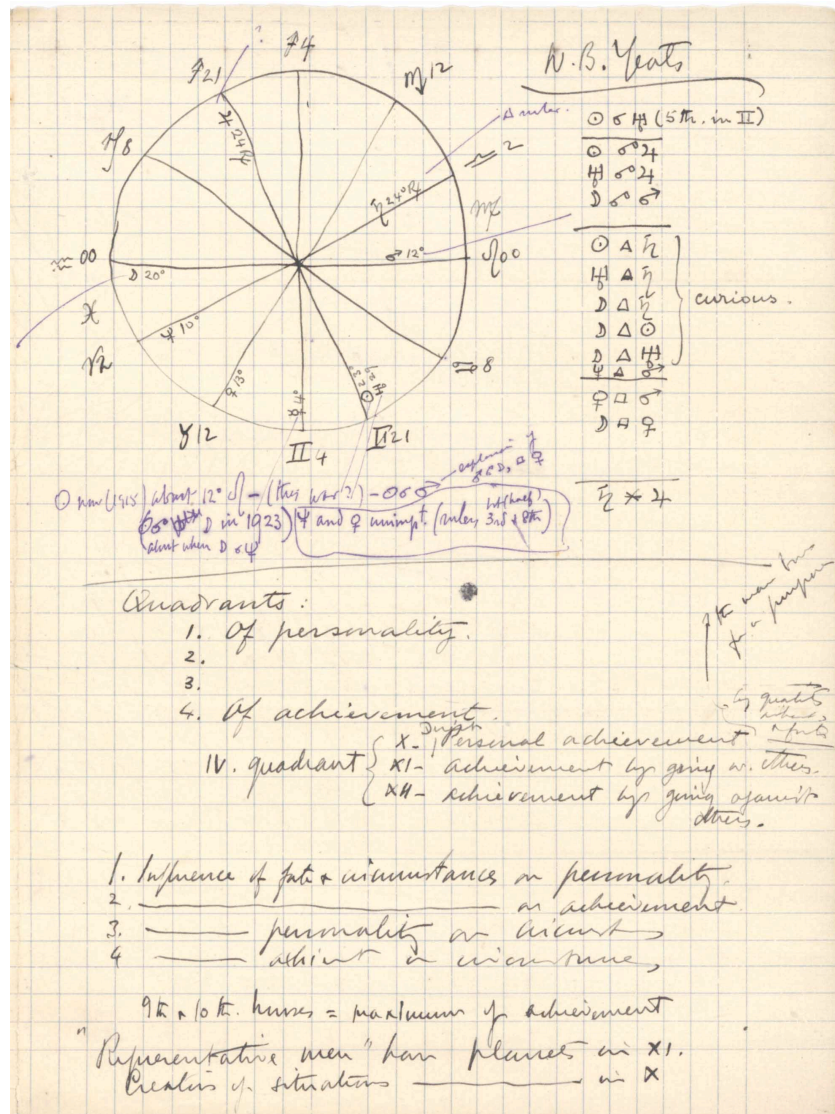 W. B. Yeats
?
♐4
♐21
♏12
♑8
♎2
♍
♒00
♌00
♓
♈2
♋8
♉12
♊4
♊21
♃ 24 ℞
♄ 24° ℞
♂ 12°
☽ 20°
♆ 10°
♀ 13°
☿ 4°
△ ruler.
☉ ☌ ♅ (5th. in II)
☉ ☍ ♃
♅ ☍ ♃
☽ ☍ ♂
☉ △ ♄
♅ △ ♄
☽ △ ♄
☽ △ ☉
☽ △ ♅
♆ △ ♂
curious.
♀ □ ♂
☽ □ ♀
♄ ⚹ ♃
explanation of
☉ now (1915) about 12° ♌ – (this war?) – ☉ ☌ ♂
☽ in 1923) ♆ and ♀ unimpt. (rulers 3rd & 8th)
about when ☽ ☌ ♆
Quadrants:
1. Of personality.
2.
3.
4. Of achievement.
by quality
IV. quadrant
X – Personal achievement
XI – achievement by going w. others.
XII – achievement by going against
others.
1. Influence of fate & circumstances on personality.
2. ———— on achievement.
3. ——— personality on circumst
4 ——— achievt on circumstances
9th & 10th. houses = maximum of achievement
"Representative men" have planets in XI.
Creators of situations ———— in X